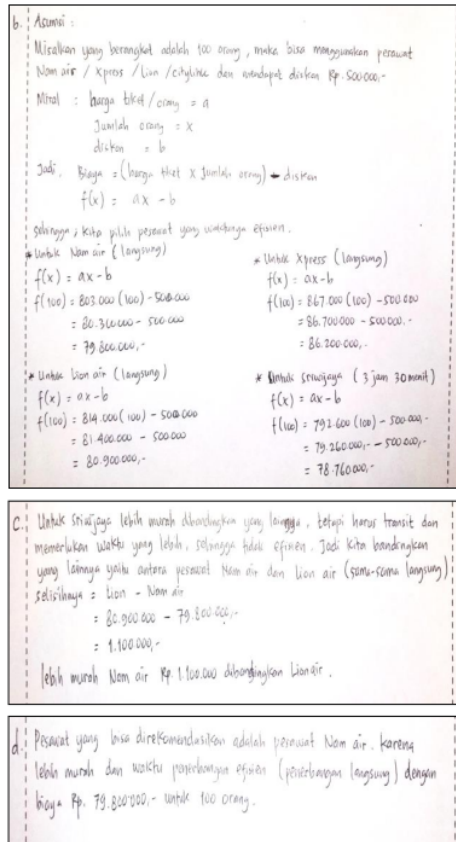 b. Asumsi :
Misalkan yang berangkat adalah 100 orang, maka bisa menggunakan pesawat
Nam air / Xpress / Lion / citylink dan mendapat diskon Rp. 500.000,-
Misal : harga tiket / orang = a
Jumlah orang = x
diskon = b
Jadi, Biaya = (harga tiket x Jumlah orang) - diskon
f(x) = ax - b
Sehingga, kita pilih pesawat yang waktunya efisien.
* Untuk Nam air (langsung)
f(x) = ax - b
f(100) = 803.000 (100) - 500.000
= 80.300.000 - 500.000
= 79.800.000,-
* Untuk Xpress (langsung)
f(x) = ax - b
f(100) = 867.000 (100) - 500.000
= 86.700.000 - 500.000,-
= 86.200.000,-
* Untuk Lion air (langsung)
f(x) = ax - b
f(100) = 814.000 (100) - 500.000
= 81.400.000 - 500.000
= 80.900.000,-
* Untuk Sriwijaya (3 jam 30 menit)
f(x) = ax - b
f(100) = 792.600 (100) - 500.000,-
= 79.260.000,- - 500.000,-
= 78.760.000,-
C. Untuk Sriwijaya lebih murah dibandingkan yang lainnya, tetapi harus transit dan
memerlukan waktu yang lebih, sehingga tidak efisien. Jadi kita bandingkan
yang lainnya yaitu antara pesawat Nam air dan Lion air (sama-sama langsung)
Selisihnya = Lion - Nam air
= 80.900.000 - 79.800.000,-
= 1.100.000,-
lebih murah Nam air Rp. 1.100.000 dibandingkan Lion air.
d. Pesawat yang bisa direkomendasikan adalah pesawat Nam air. Karena
lebih murah dan waktu penerbangan efisien (penerbangan langsung) dengan
biaya Rp. 79.800.000,- untuk 100 orang.